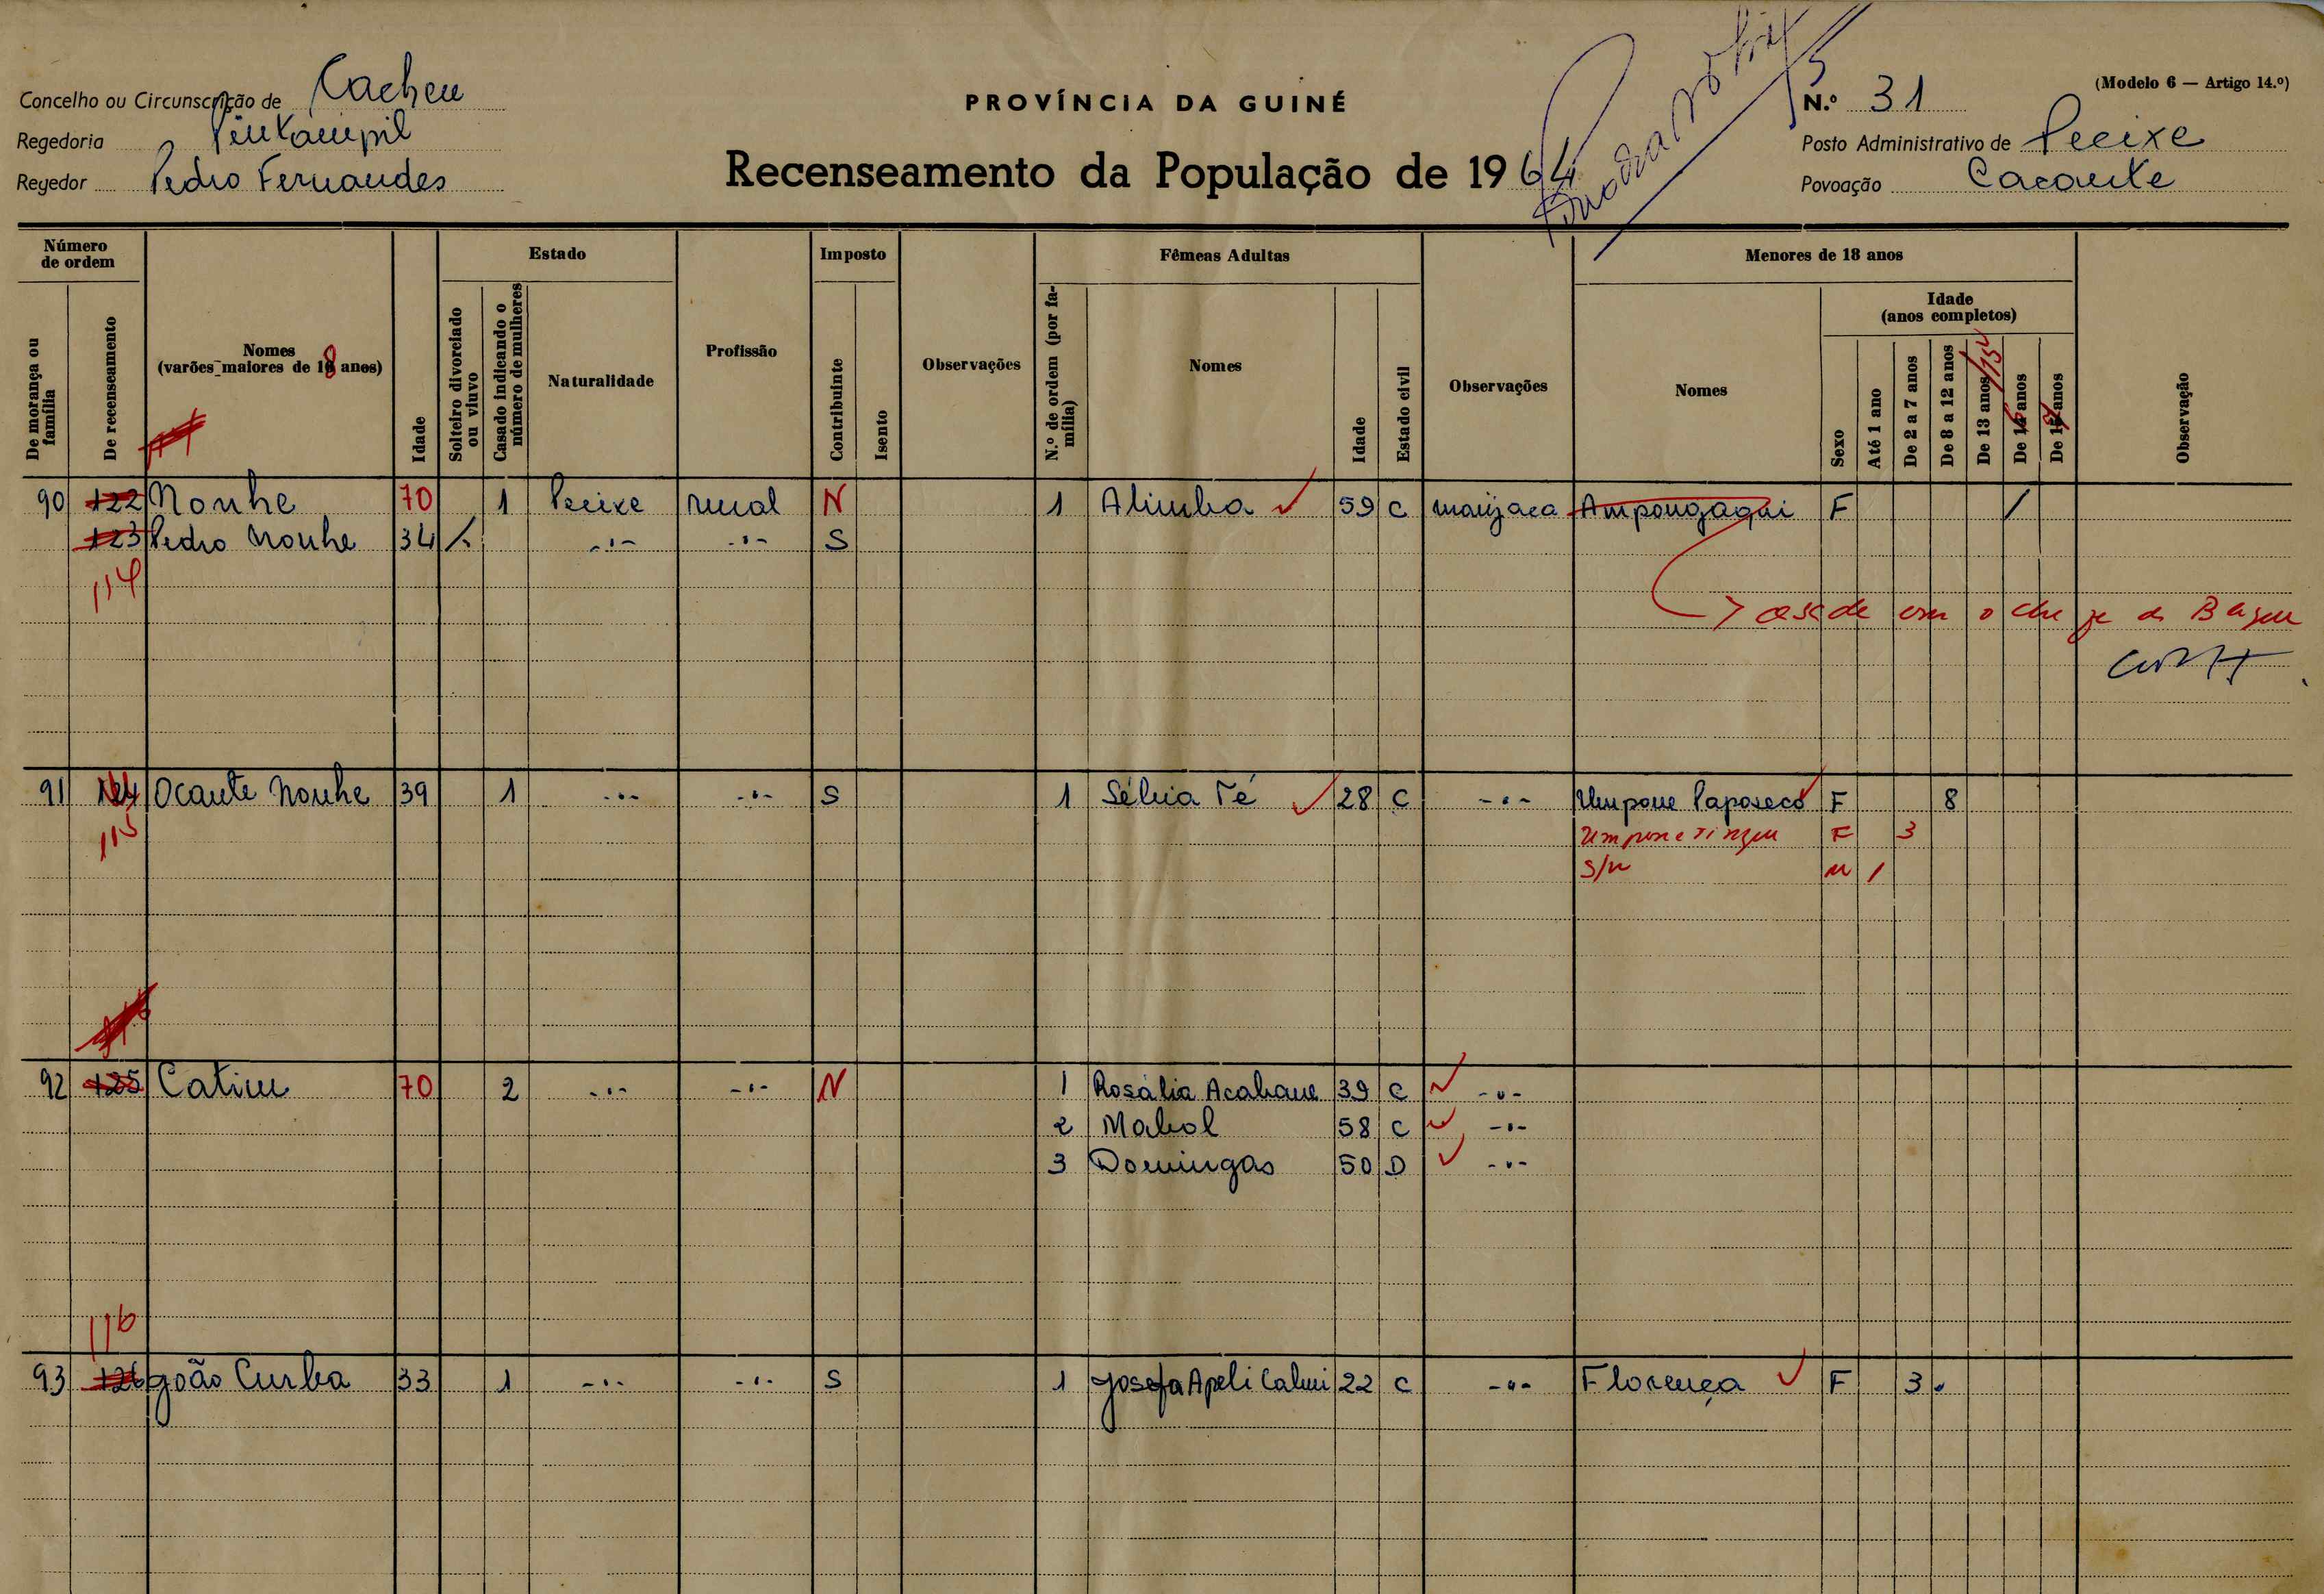 Concelho ou Circunscrição de Cacheu
Regedoria
Regedor Pedro Fernandes
PROVÍNCIA DA GUINÉ
Recenseamento da População de 1964
(Modelo 6 — Artigo 14.º)
N.º 31
Posto Administrativo de Pecixe
Povoação Cacante
Número de ordem
De morança ou família
De recenseamento
Nomes (varões maiores de 18 anos)
Idade
Estado
Solteiro divorciado ou viuvo
Casado indicando o número de mulheres
Naturalidade
Profissão
Imposto
Contribuinte
Isento
Observações
Fêmeas Adultas
N.º de ordem (por família)
Nomes
Idade
Estado civil
Observações
Menores de 18 anos
Nomes
Idade (anos completos)
Sexo
Até 1 ano
De 2 a 7 anos
De 8 a 12 anos
De 13 anos /15
De 16 anos
De 17 anos
Observação
90 122 Nonhe 70 1 Pecixe rural N 1 Alimba 59 C manjaca Ampongaqui F /
123 Pedro Nonhe 34 / -"- -"- S
114
91 124 Ocante Nonhe 39 1 -"- -"- S 1 Sélia Té 28 C -"- Umpone Paposeco F 8
115 F 3
S/n M 1
92 125 Catim 70 2 -"- -"- N 1 Rosália 39 C -"-
2 Mabol 58 C -"-
3 Domingas 50 D -"-
116
93 126 João Curba 33 1 -"- -"- S 1 Josefa Apeli 22 C -"- Florença F 3